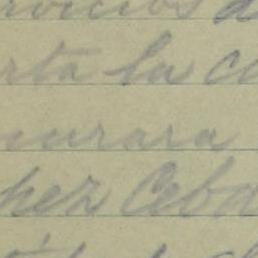 rvicios d
rta la c
curara
hez Ceba